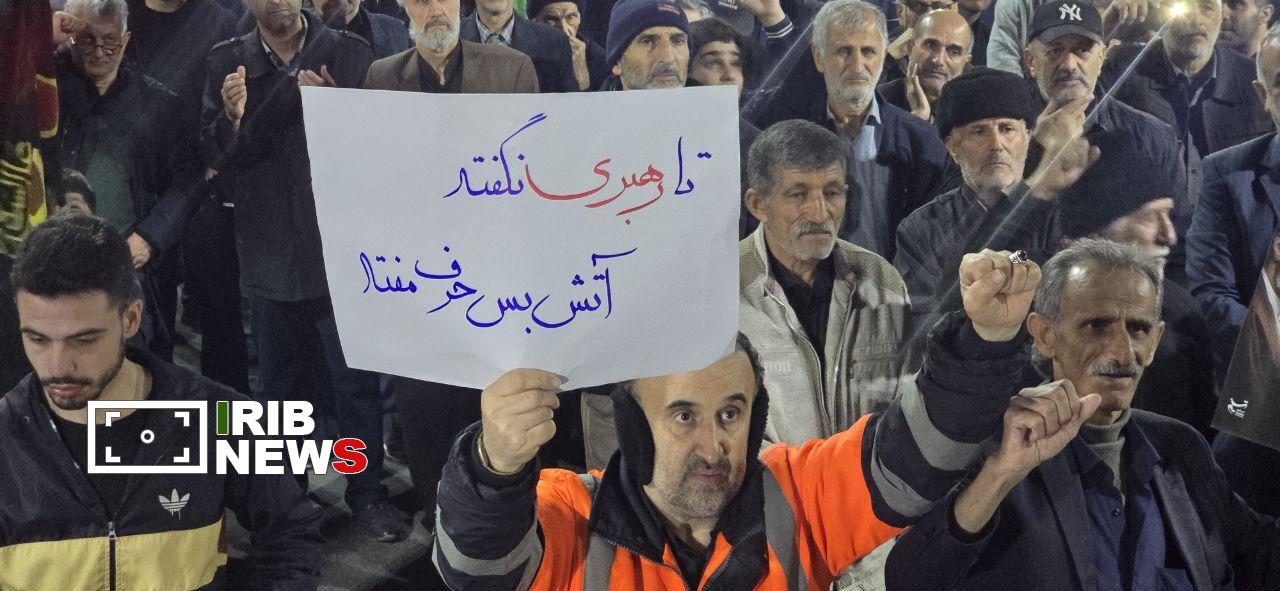 تا رهبری نگفته
آتش بس حرف مفته!
IRIB
NEWS
NY